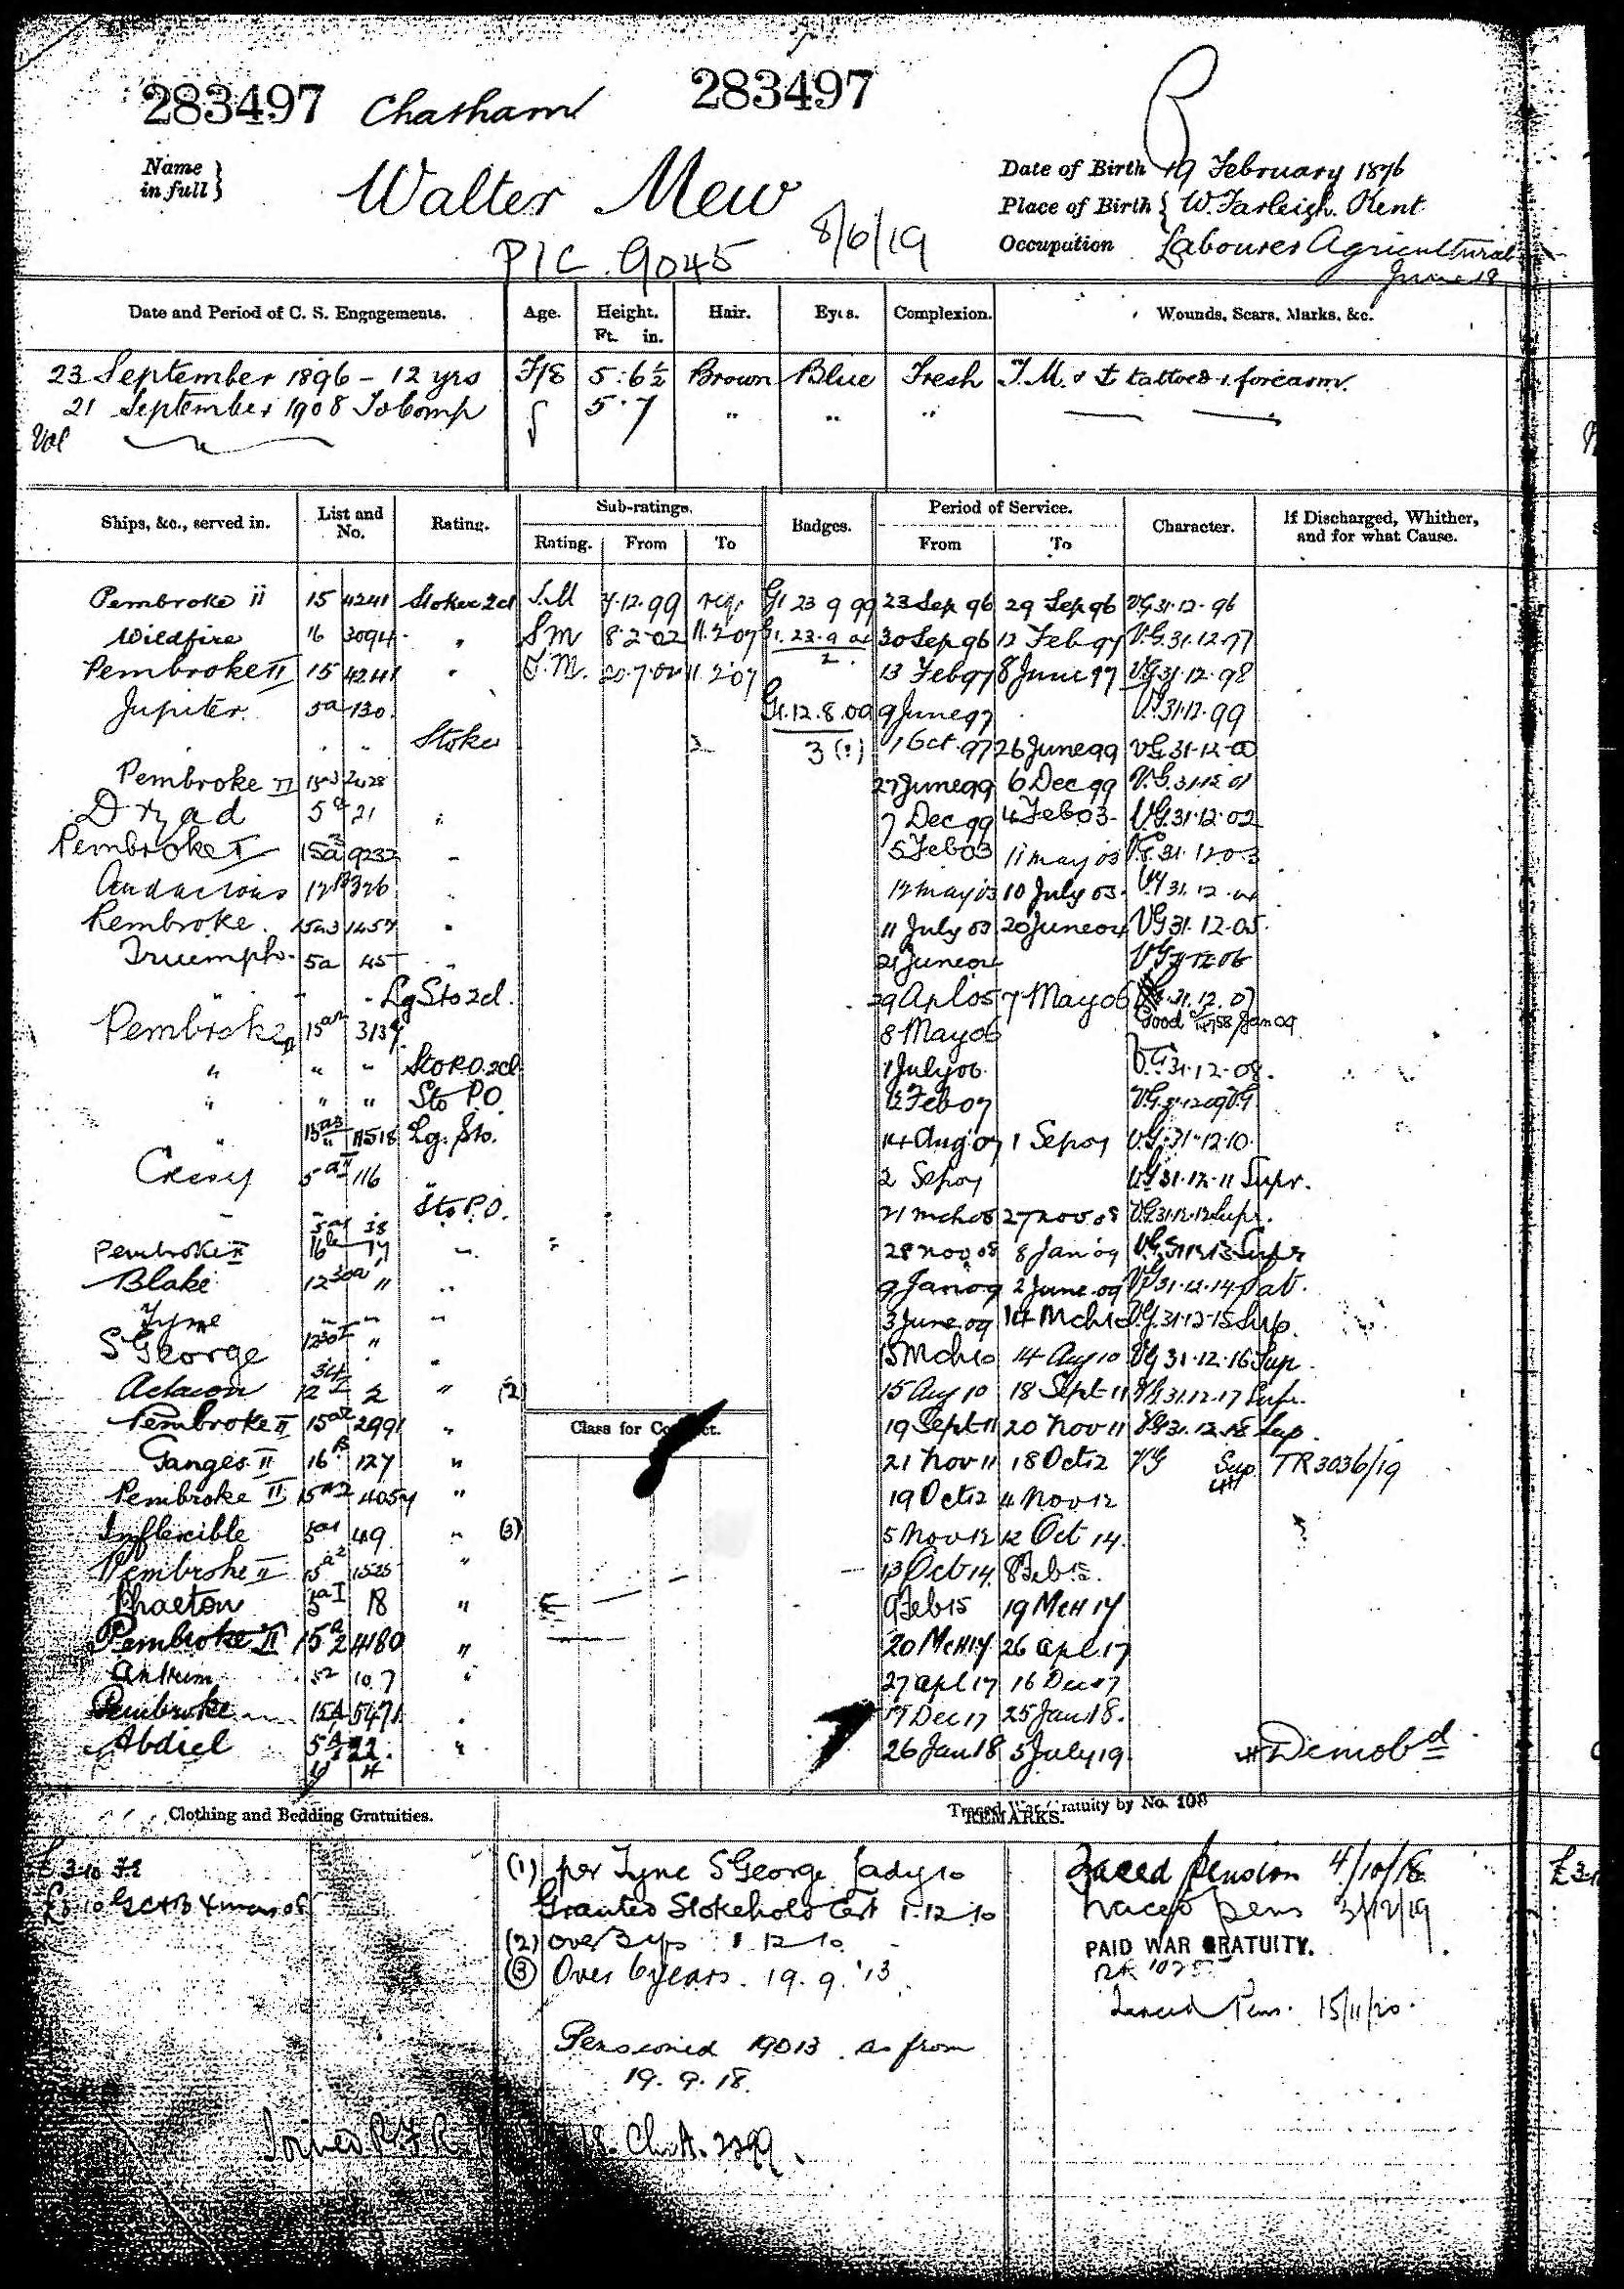 283497 Chatham 283497
Name in full } Walter Mew
Date of Birth 19 February 1876
Place of Birth } W. Farleigh. Kent
Occupation Labourer Agricultural
P/C. 9045 8/6/19
June 18
Date and Period of C. S. Engagements. Age. Height. Ft. in. Hair. Eyes. Complexion. Wounds, Scars, Marks, &c.
23 September 1896 - 12 yrs 5:6½ Brown Blue Fresh tattoed forearm.
21 September 1908 To Comp 5.7 " " "
Vol
Ships, &c., served in. List and No. Rating. Sub-ratings. Rating. From To Badges. Period of Service. From To Character. If Discharged, Whither, and for what Cause.
Pembroke ii 15 4241 Stoker 2cl S.M 7.12.99 G1 23 9 99 23 Sep 96 29 Sep 96 V.G 31.12.96
Wildfire 16 3094 " S M 8.2.02 11.2.07 30 Sep 96 12 Feb 97 V.G. 31.12.97
Pembroke II 15 4241 " 20.7.02 11.2.07 2. 13 Feb 97 8 June 97 V.G 31.12.98
Jupiter. 5a 130. G1.12.8.09 9 June 97 V.G. 31.12.99
" " " Stoker 3 1 Oct. 97 26 June 99 V.G. 31-12-00
Pembroke II 27 June 99 6 Dec 99 V.G. 31.12.01
Dryad 5a 21 " 7 Dec 99 4 Feb 03 V.G. 31.12.02
Pembroke II 9232 " 5 Feb 03 11 May 03 V.G. 31.12.03
Audacious 326 " 12 May 03 10 July 03. V.G 31.12.04
Pembroke. 15a3 1457 " 11 July 03 20 June 04 V.G 31.12.05.
Triumph. 5a 45 " 21 June 04 V.G 31.12.06
" " " Lg Sto 2cl. 29 Apl 05 7 May 06 31.12.07
Pembroke II 15a2 3137 8 May 06 Good 8 Jan 09
" " " Sto P.O. 2cl 1 July 06. V.G. 31.12.08.
" " " Sto P.O. 12 Feb 07 V.G.
" 15a3 11518 Lg. Sto. 14 Aug. 07 1 Sep 07 V.G. 31.12.10.
Cressy 5aII 116 " 2 Sep 07 V.G 31.12.11 Supr.
" " " Sto P.O. 21 Mch 08 27 Nov. 08 V.G 31.12.12 Supr.
Pembroke II " 28 Nov 08 8 Jan 09 V.G. 31.12.13 Supr
Blake " 9 Jan 09 2 June 09 V.G 31.12.14 Sat.
Tyne " " " 3 June 09 14 Mch 10 V.G. 31.12.15 Sup.
St George " " 15 Mch 10 14 Aug 10 V.G 31.12.16 Sup.
Actaeon 12 2 " (2) 15 Aug 10 18 Sept 11 V.G. 31.12.17 Supr.
Pembroke II 15a2 2991 " 19 Sept 11 20 Nov 11 V.G 31.12.18 Sup.
Class for Conduct.
Ganges II 16B 127 " 21 Nov 11 18 Oct 12 V.G Sup. TR 3036/19
Pembroke II 15a2 4057 " 19 Oct 12 4 Nov 12
Inflexible 5a1 49 " (3) 5 Nov 12 12 Oct 14.
Pembroke II 15a2 1525 " 13 Oct 14. 8 Feb 15.
Phaeton 5aI 18 " 9 Feb 15 19 Mch 17
Pembroke II 15a2 4180 " 20 Mch 17 26 Apl. 17
Antrim 107 " 27 Apl 17 16 Dec 17
Pembroke 15A 5471 " 17 Dec 17 25 Jan 18.
Abdiel 5A 22. " 26 Jan 18 5 July 19. Demobd
Clothing and Bedding Gratuities.
Traced War Gratuity by No. 108
REMARKS.
(1) per Tyne St George
Granted Stokehold Cert 1.12.10
(2) Over 3 yrs 1.12.10.
(3) Over 6 years. 19.9.'13.
Pensioned 19013. as from
19.9.18.
Traced Pension 4/10/18
Traced Pens 3/12/19
PAID WAR GRATUITY.
Traced Pens. 15/11/20.
Joined R.F.R. 18. Ch. A.